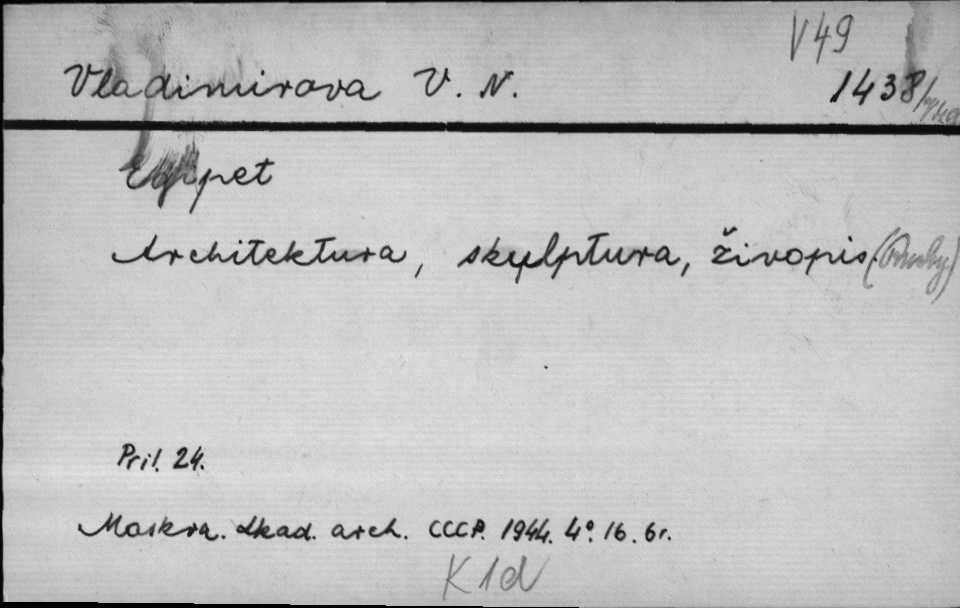 V49
Vladimirova V. N. 1438/
Egipet
Architektura, skulptura, živopis.
Pril. 24.
Moskva. Akad. arch. CCCP. 1944. 4°. 16. 6r.
K1d